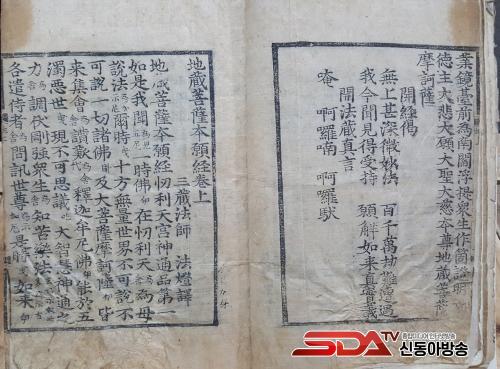 業鏡臺前為南閻浮提衆生作箇證明
德主大悲大願大聖大慈本尊地藏菩薩
摩訶薩
開經偈
無上甚深微妙法 百千萬劫難遭遇
我今聞見得受持 願解如來真實義
開法藏真言
唵 啊囉喃 啊囉馱
地藏菩薩本願經卷上
三藏法師 法燈譯
地藏菩薩本願經忉利天宮神通品第一
如是我聞 一時佛 在忉利天 為母
說法 爾時 十方無量世界不可說不
可說一切諸佛 及大菩薩摩訶薩 皆
來集會 讚歎 釋迦牟尼佛 能於五
濁惡世 現不可思議 大智慧神通之
力 調伏剛強衆生 知苦樂法
各遣侍者 問訊世尊 是時 如來
SDATV
종합미디어 인터넷방송
신동아방송